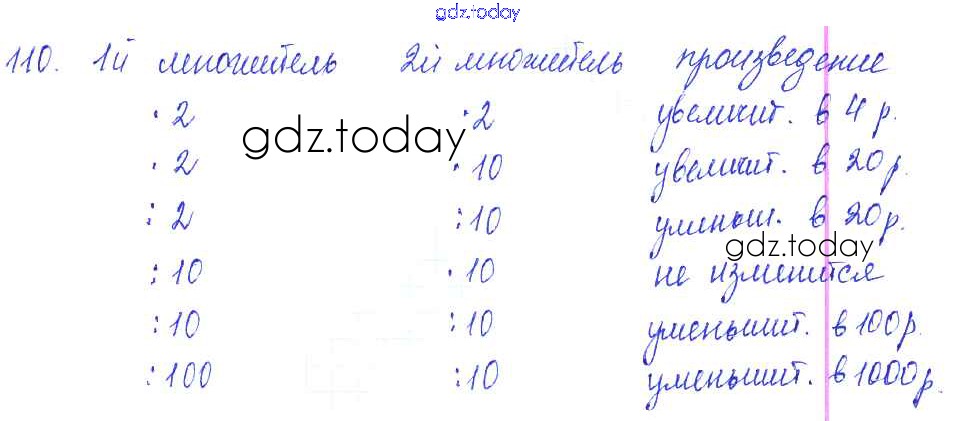 gdz.today
110. 1й множитель 2й множитель произведение
· 2 · 2 увеличит. в 4 р.
gdz.today
· 2 · 10 увеличит. в 20 р.
: 2 : 10 уменьш. в 20 р.
gdz.today
: 10 · 10 не изменится
: 10 : 10 уменьшит. в 100 р.
: 100 : 10 уменьшит. в 1000 р.